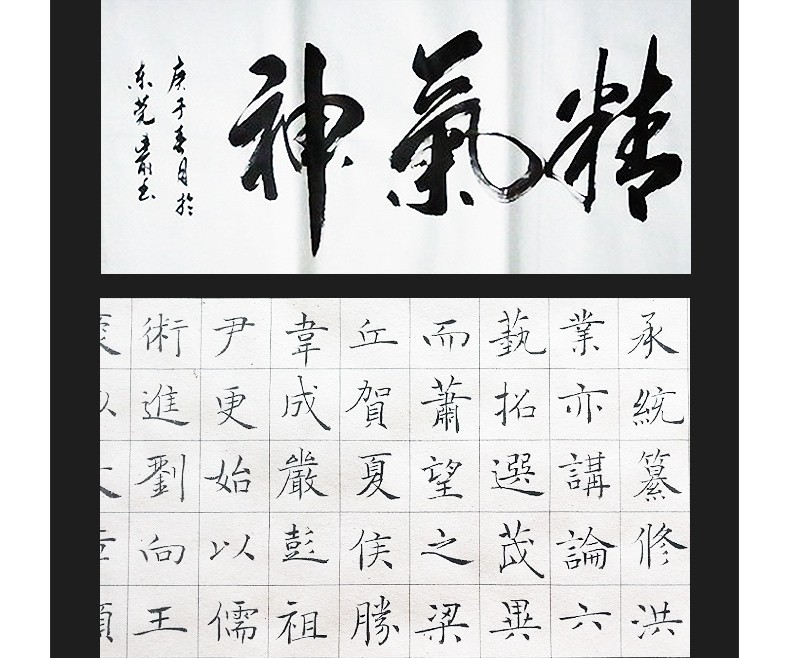 精氣神
庚子春月於
东莞
承統纂修洪
業亦講論六
蓺招選茂異
而蕭望之梁
丘賀夏侯勝
韋成嚴彭祖
尹更始以儒
術進劉向王